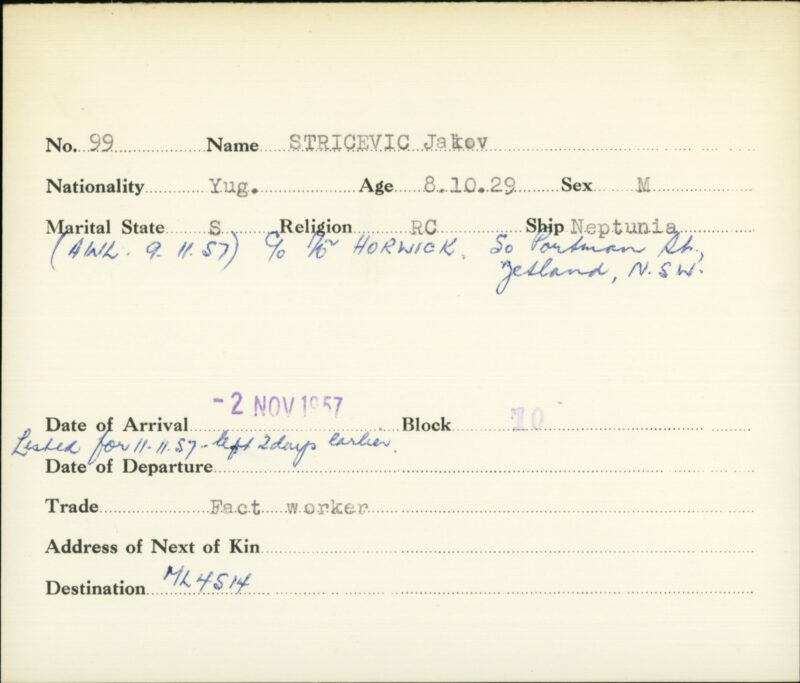 No. 99 Name STRICEVIC Jakov
Nationality Yug. Age 8.10.29 Sex M
Marital State S Religion RC Ship Neptunia
(AWL. 9.11.57) C/o HORWICK, 50 Portman St.,
Zetland, N.S.W.
Date of Arrival -2 NOV 1957 Block 10
Listed for 11.11.57 - left 2 days earlier.
Date of Departure
Trade Fact worker
Address of Next of Kin
Destination ML4514